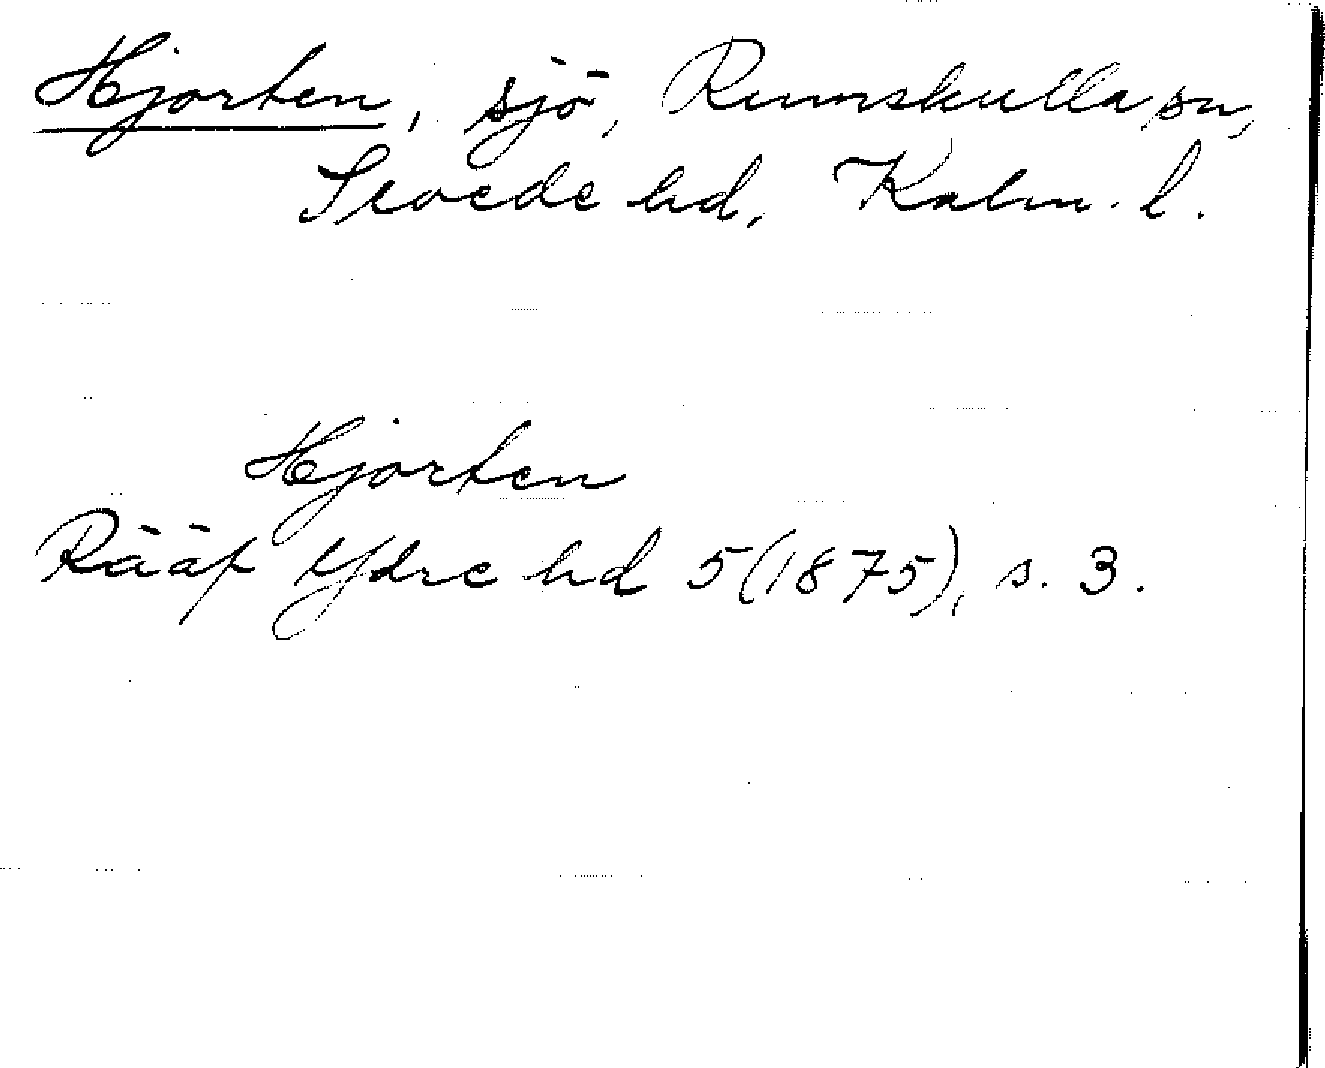 Hjorten, sjö, Rumskulla sn,
Sevede hd, Kalm. l.
Hjorten
Rääf Ydre hd 5(1875), s. 3.